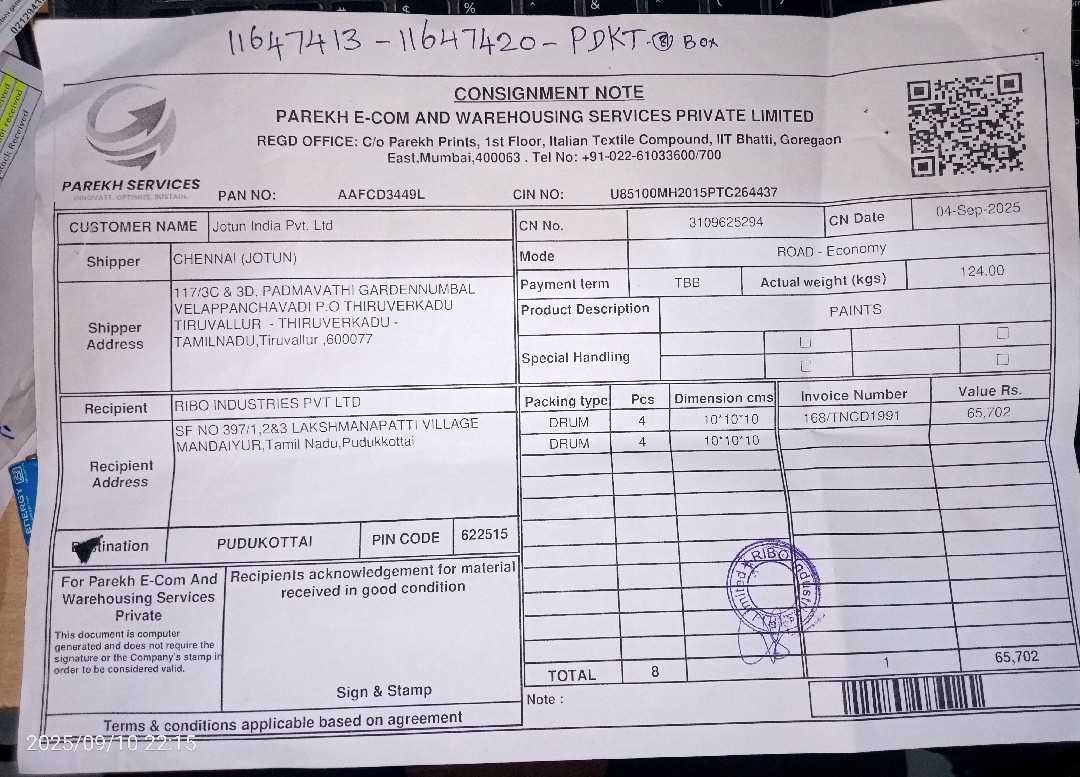 11647413 - 11647420 - PDKT - 8 Box
CONSIGNMENT NOTE
PAREKH E-COM AND WAREHOUSING SERVICES PRIVATE LIMITED
REGD OFFICE: C/o Parekh Prints, 1st Floor, Italian Textile Compound, IIT Bhatti, Goregaon
East,Mumbai,400063 . Tel No: +91-022-61033600/700
PAREKH SERVICES
INNOVATE. OPTIMISE. SUSTAIN.
PAN NO: AAFCD3449L CIN NO: U85100MH2015PTC264437
CUSTOMER NAME Jotun India Pvt. Ltd
CN No. 3109625294 CN Date 04-Sep-2025
Shipper CHENNAI (JOTUN)
Mode ROAD - Economy
Payment term TBB Actual weight (kgs) 124.00
Shipper
Address
117/3C & 3D, PADMAVATHI GARDENNUMBAL
VELAPPANCHAVADI P.O THIRUVERKADU
TIRUVALLUR - THIRUVERKADU -
TAMILNADU,Tiruvallur ,600077
Product Description PAINTS
Special Handling
Recipient RIBO INDUSTRIES PVT LTD
Recipient
Address
SF NO 397/1,2&3 LAKSHMANAPATTI VILLAGE
MANDAIYUR,Tamil Nadu,Pudukkottai
Packing type Pcs Dimension cms Invoice Number Value Rs.
DRUM 4 10*10*10 168/TNCD1991 65,702
DRUM 4 10*10*10
tination PUDUKOTTAI PIN CODE 622515
For Parekh E-Com And
Warehousing Services
Private
This document is computer
generated and does not require the
signature or the Company's stamp in
order to be considered valid.
Recipients acknowledgement for material
received in good condition
Sign & Stamp
RIBO Industri
Limited
TOTAL 8 1 65,702
Note :
Terms & conditions applicable based on agreement
2025/09/10 22:15
ENERGY